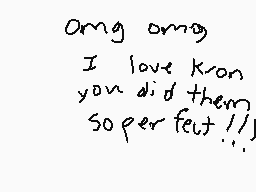 omg omg
I love Kron
you did them
so perfect!!!